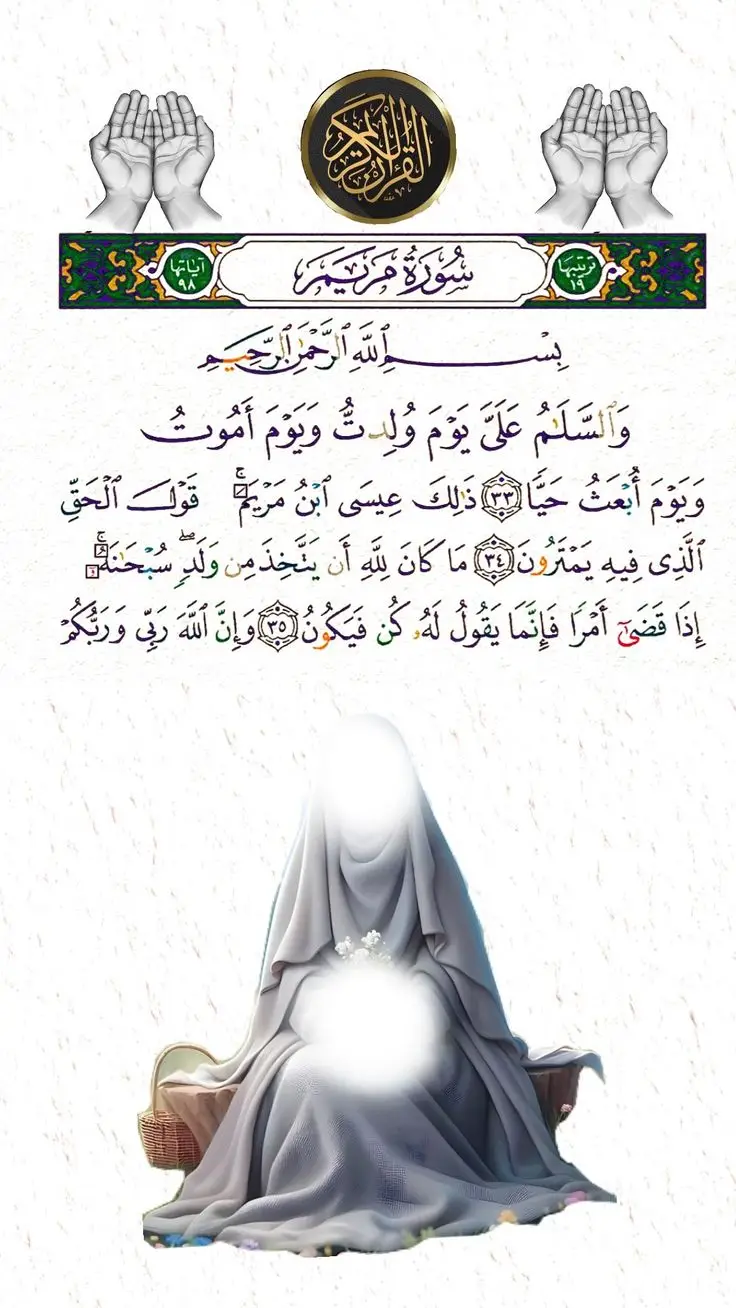 القرآن الكريم
آياتها ٩٨ سُورَةُ مَرْيَمَ ترتيبها ١٩
بِسْمِ ٱللَّهِ ٱلرَّحْمَٰنِ ٱلرَّحِيمِ
وَٱلسَّلَٰمُ عَلَىَّ يَوْمَ وُلِدتُّ وَيَوْمَ أَمُوتُ
وَيَوْمَ أُبْعَثُ حَيًّا ٣٣ ذَٰلِكَ عِيسَى ٱبْنُ مَرْيَمَ ۚ قَوْلَ ٱلْحَقِّ
ٱلَّذِى فِيهِ يَمْتَرُونَ ٣٤ مَا كَانَ لِلَّهِ أَن يَتَّخِذَ مِن وَلَدٍۢ ۖ سُبْحَٰنَهُۥٓ ۚ
إِذَا قَضَىٰٓ أَمْرًا فَإِنَّمَا يَقُولُ لَهُۥ كُن فَيَكُونُ ٣٥ وَإِنَّ ٱللَّهَ رَبِّى وَرَبُّكُمْ